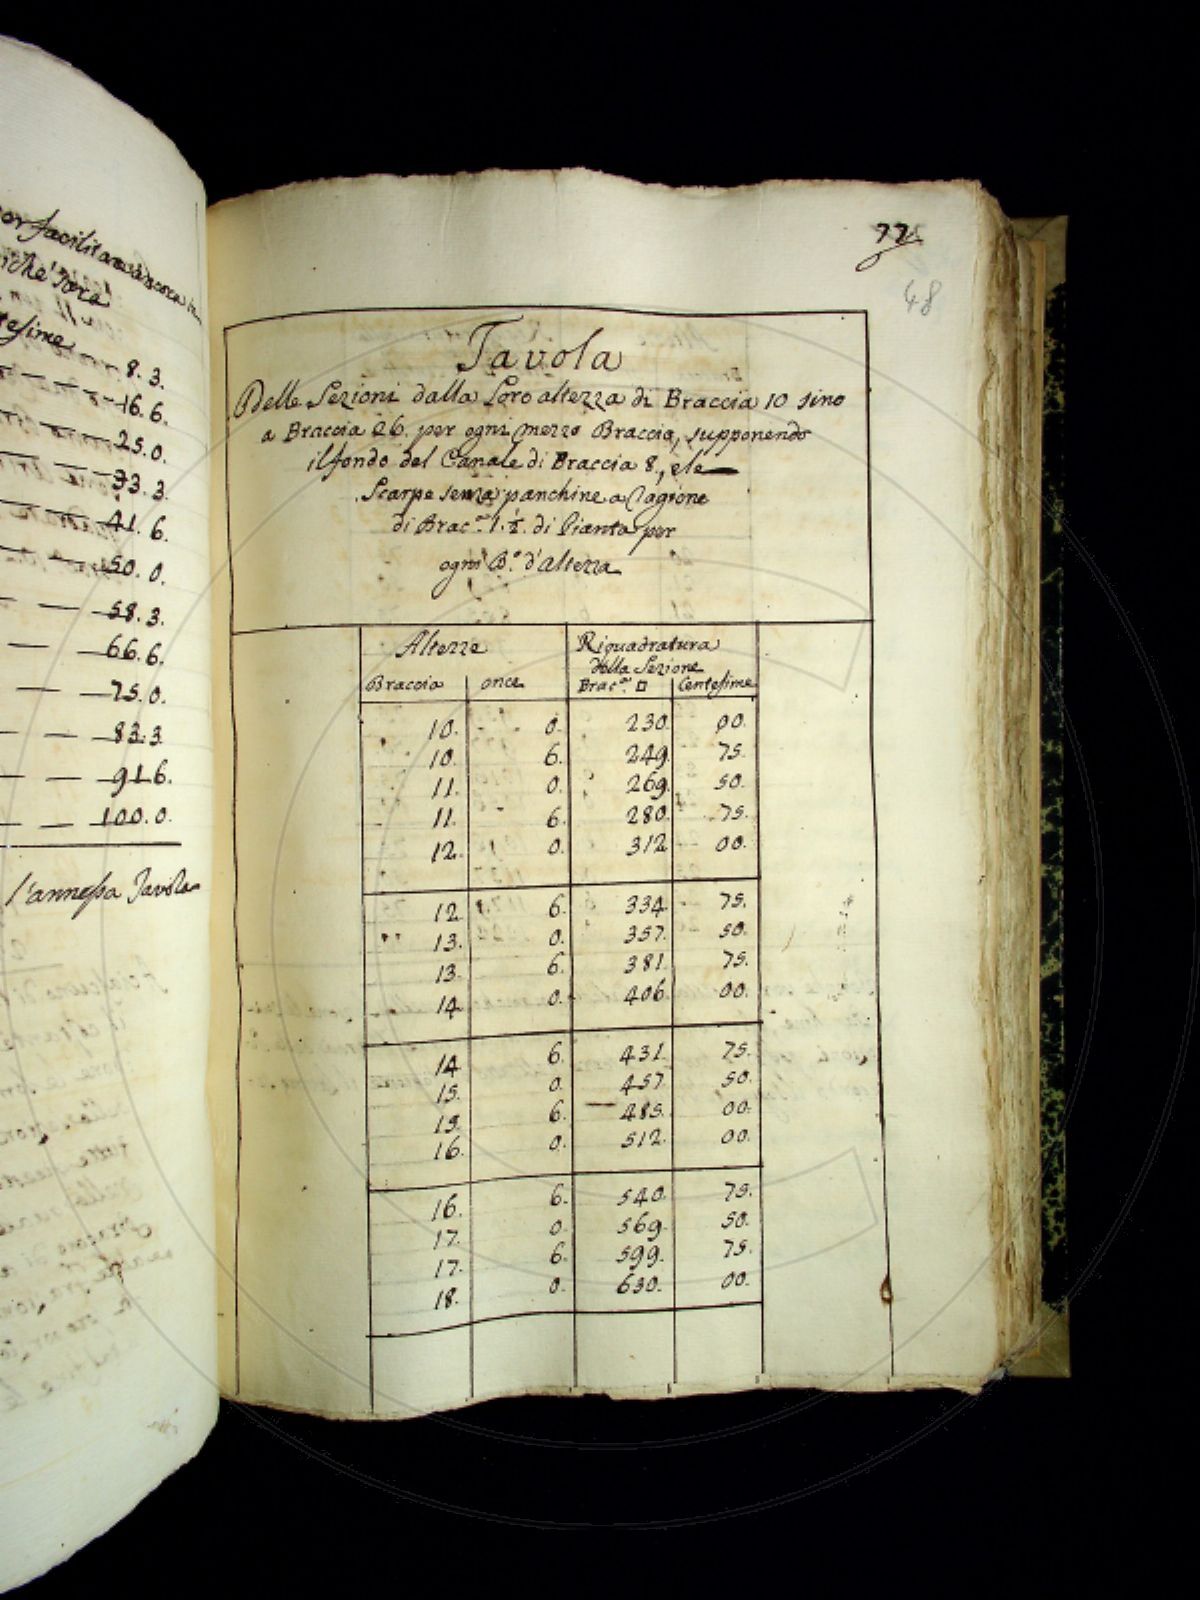 facilitare ancora
tesime
8. 3.
16. 6.
25. 0.
33. 3.
41. 6.
50. 0.
58. 3.
66. 6.
75. 0.
83. 3
91. 6.
100. 0.
l'annessa Tavola
77
48
Tavola
Delle Sezioni dalla Loro altezza di Braccia 10 sino
a Braccia 26. per ogni mezzo Braccia, supponendo
il fondo del Canale di Braccia 8., e le
Scarpe senza panchine a ragione
di Brac.ª 1. ½. di Pianta per
ogni B.º d'altezza
Altezze Riquadratura
della Sezione
Braccia once Brac.ª □ Centesime
10. 0. 230. 00.
10. 6. 249. 75.
11. 0. 269. 50.
11. 6. 280. 75.
12. 0. 312 00.
12 6. 334. 75.
13. 0. 357. 50.
13. 6. 381. 75.
14 0. 406 00.
14 6. 431. 75.
15. 0. 457. 50.
15. 6. 485. 00.
16. 0. 512. 00.
16. 6. 540. 75.
17. 0. 569. 50.
17. 6. 599. 75.
18. 0. 630. 00.